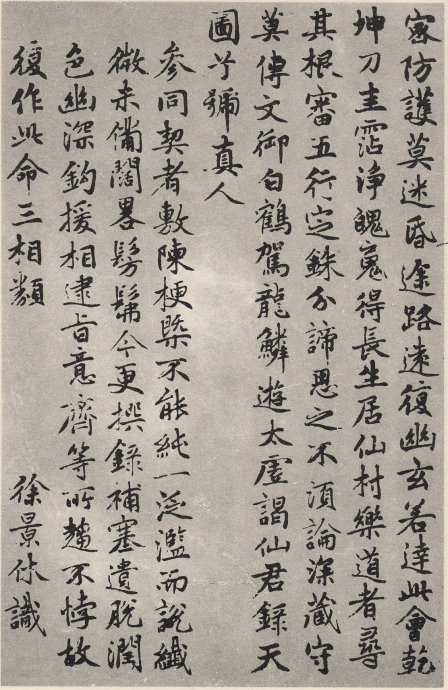 家防護莫迷昏途路遠復幽玄若達此會乾
坤刀圭霑浄魄䰟得長生居仙村樂道者尋
其根審五行定銖分諦思之不須論深藏守
莫傳文御白鶴駕龍鱗遊太虛謁仙君錄天
圖兮號真人
参同契者敷陳梗槩不能純一泛濫而說纖
微未備闊畧髣髴今更撰錄補塞遺脫潤
色幽深鈎援相逮旨意齊等所趍不悖故
復作此命三相類
徐景休識